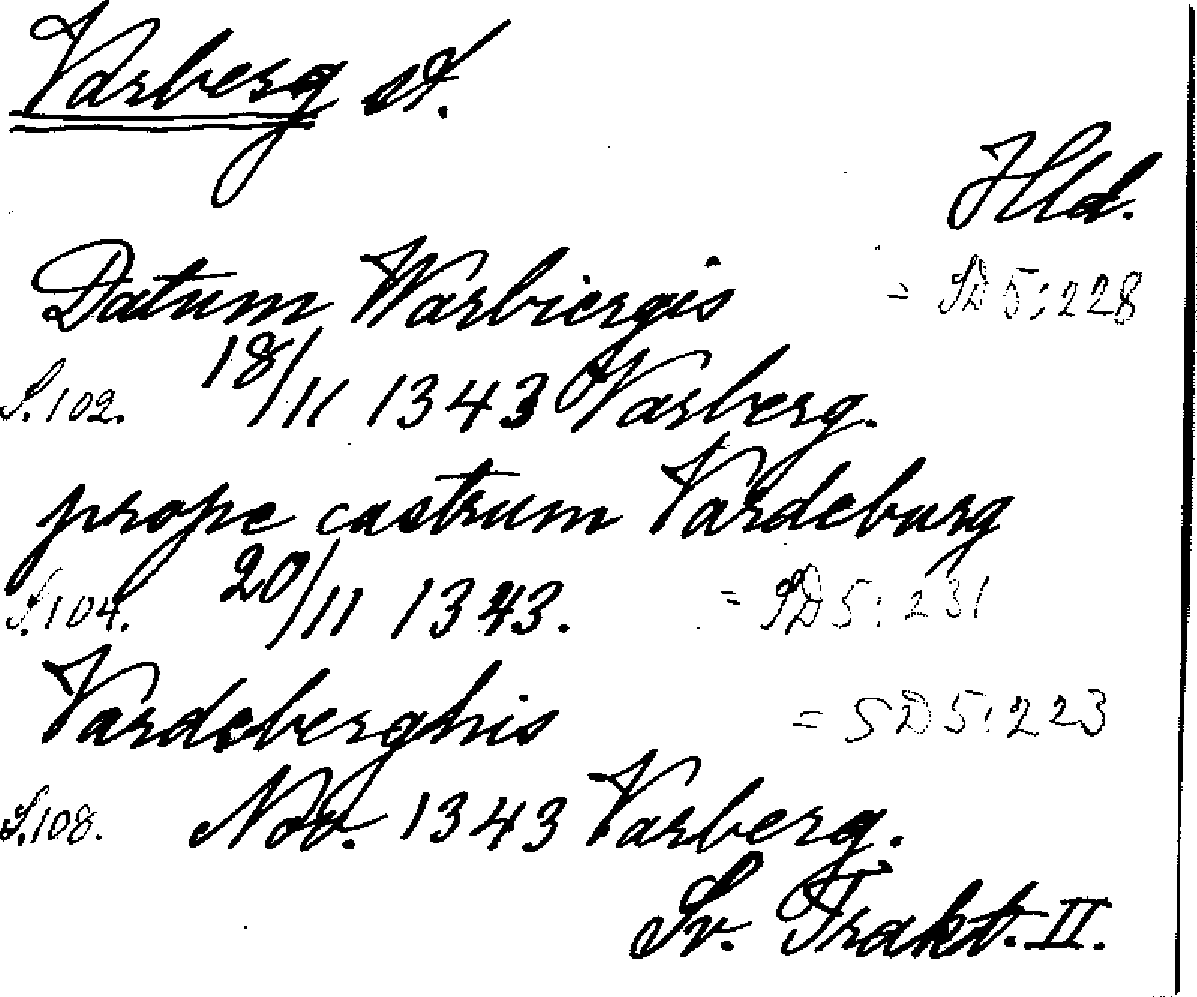 Varberg st.
Hld.
Datum Warbiergis = SD 5:228
S.102. 18/11 1343 Varberg.
prope castrum Vardeburg
S.104. 20/11 1343. = SD 5:231
Vardeberghis = SD 5:223
S.108. Nov. 1343 Varberg.
Sv. Trakt. II.